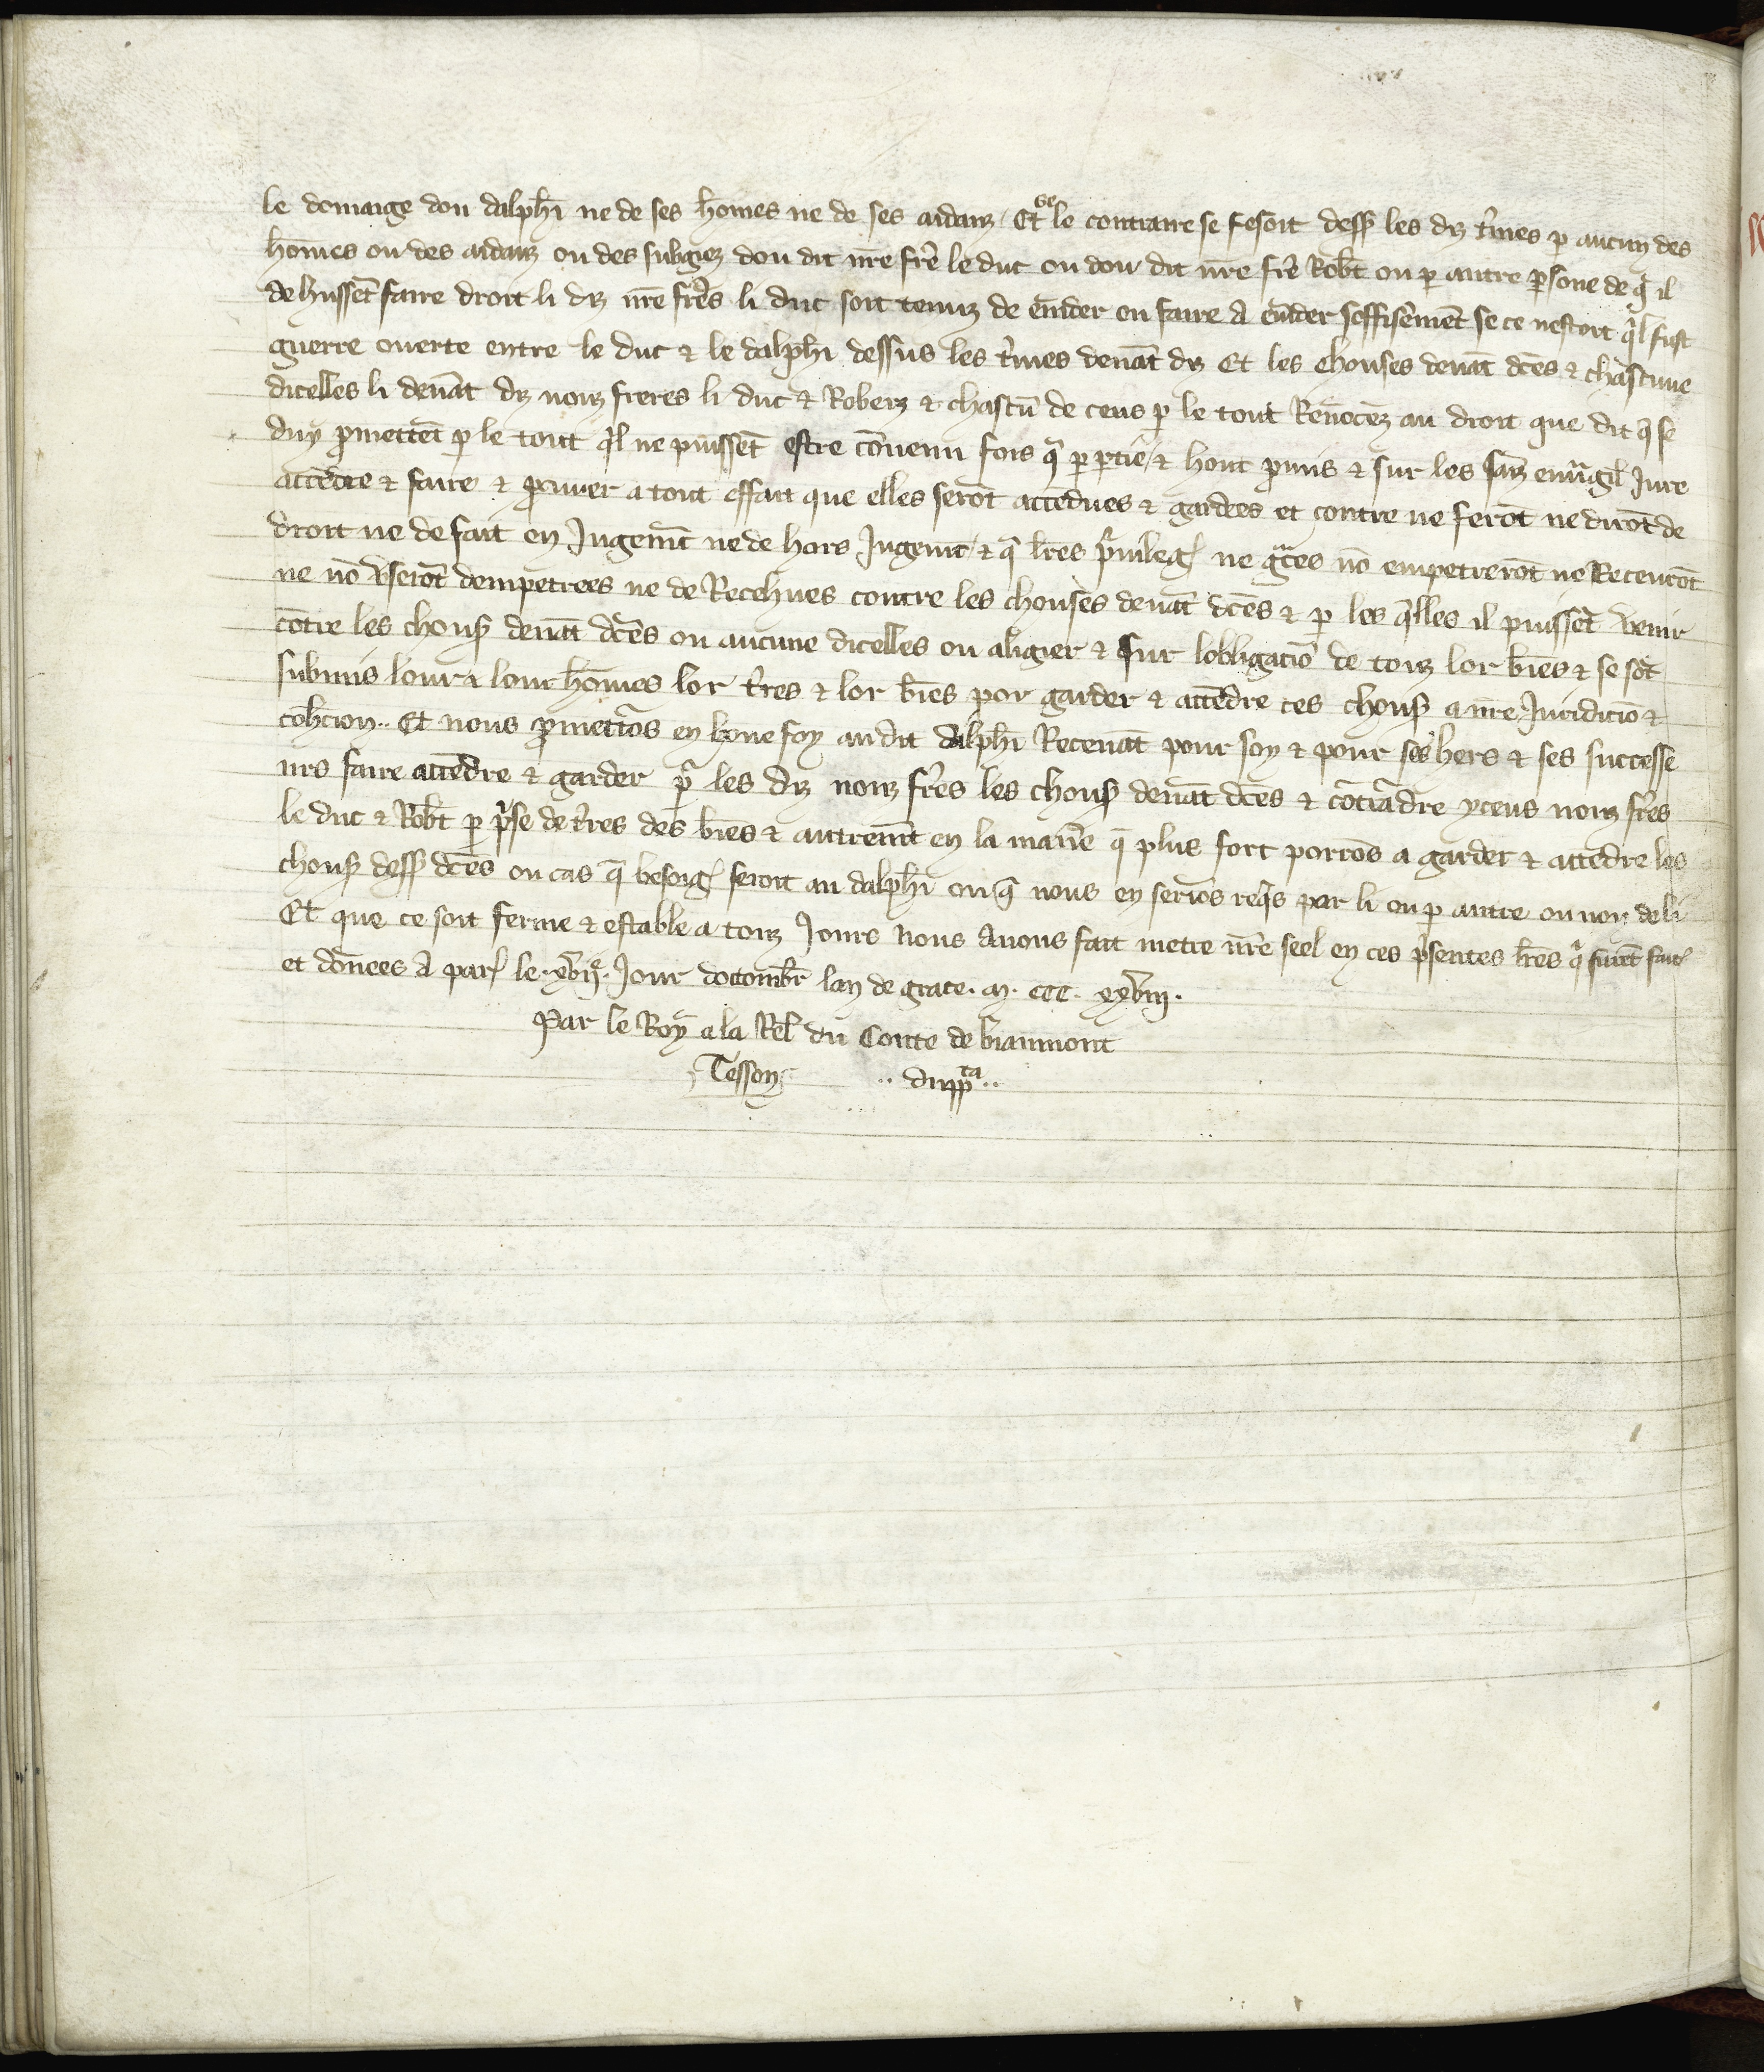 le domaige dou dalphī ne de ses hōmes ne de ses aidanz Et se le contraire se fesoit dess9 les diz t'mes p aucun des
hōmes ou des aidanz ou des subgiez dou dit nr̄e frēe le duc ou dou dit nr̄e frē Rob̄t ou p autre psone de q̄ il
dehussēt faire droit li diz nr̄e fr̄es li duc soit tenuz de em̄der ou faire a em̄der soffisēmēt se ce nestoit q̄l fust
guerre ouerte entre le duc & le dalphī dessus les t'mes deuāt diz Et les chouses deuāt dc̄es & chascune
dicelles li deuāt diz nouz freres li duc & Roberz & chascū de ceus p le tout Renōcēz au droit que dit q̄ se
duy pmettēt p le tout q̄l ne puissēt estre cōuenu fors q̄ p ptie & hont pmis & sur les saīz euuāgil Jure
accēdre & faire & procurer a tout effait que elles serōt accēdues & gardees et contre ne ferōt ne dirōt de
droit ne de fait en Jugemt̄ ne de hors Jugemt̄ & q̄ lr̄es p'uileg ne ḡces nō empetrerōt ne Receurōt
ne nō vserōt dempetrees ne de Recehues contre les chouses deuāt dc̄es & p les q̄lles il puissēt venir
cōtre les chous9 deuāt dc̄es ou aucune dicelles ou aligier & sur lobligaciō de touz lor biēs & se sōt
submis lour & lour hōmes lor t'res & lor biēs por garder & accēdre ces chous9 a nr̄e Juridiciō &
cohcion .. Et nous pmettōs en bone foy au dit dalphī Receuāt pour soy & pour ses hers & ses successe
urs faire accēdre & garder p les diz nouz fr̄es les chous9 deuāt dc̄es & cōtrādre yceus nouz fr̄es
le duc & Rob̄t p p'se de t'res des biēs & autremt̄ en la maniē q̄ plus fort porrōs a garder & attēdre les
chous9 dess9 dc̄es ou cas q̄ besoig seroit au dalphī ou q̄ nous en seriōs req̄s par li ou p autre ou non de li
Et que ce soit ferme & estable a touz Jours Nous Auons fait metre nr̄e seel en ces p'sentes lr̄es q̄ furēt fait
et dōnees a par le .xvije. Jour doctombr̄ lan de grace . m . ccc . xxviij .
Par le Roy a la Rel̄ du Conte de biaumont
Tesson .. dupp ta ..